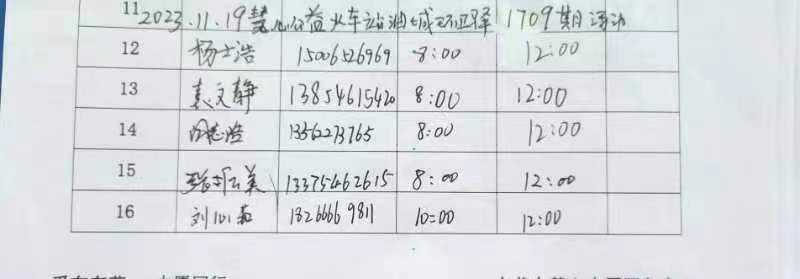 11 2023.11.19慧心公益火车站油城环卫驿1709期活动
12 杨士浩 15006526969 8:00 12:00
13 袁文静 13854615420 8:00 12:00
14 周志浩 13562273765 8:00 12:00
15 美 13375462615 8:00 12:00
16 刘 18266669811 10:00 12:00